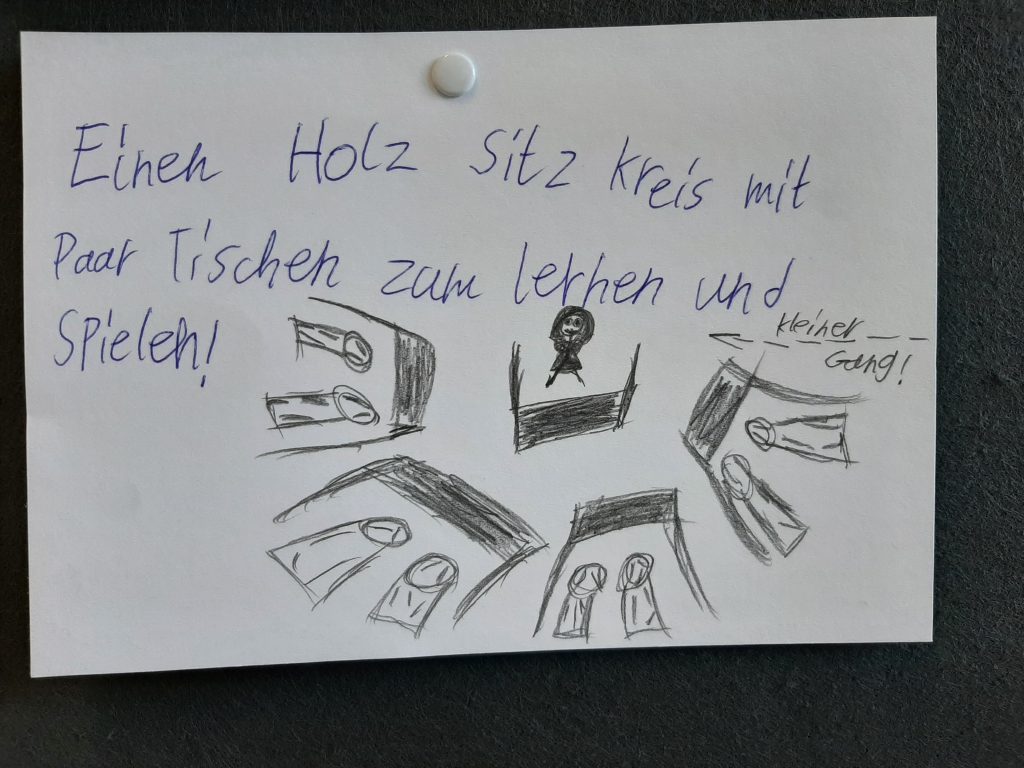 Einen Holz sitz kreis mit
Paar Tischen zum lernen und
Spielen!
kleiner
Gang!